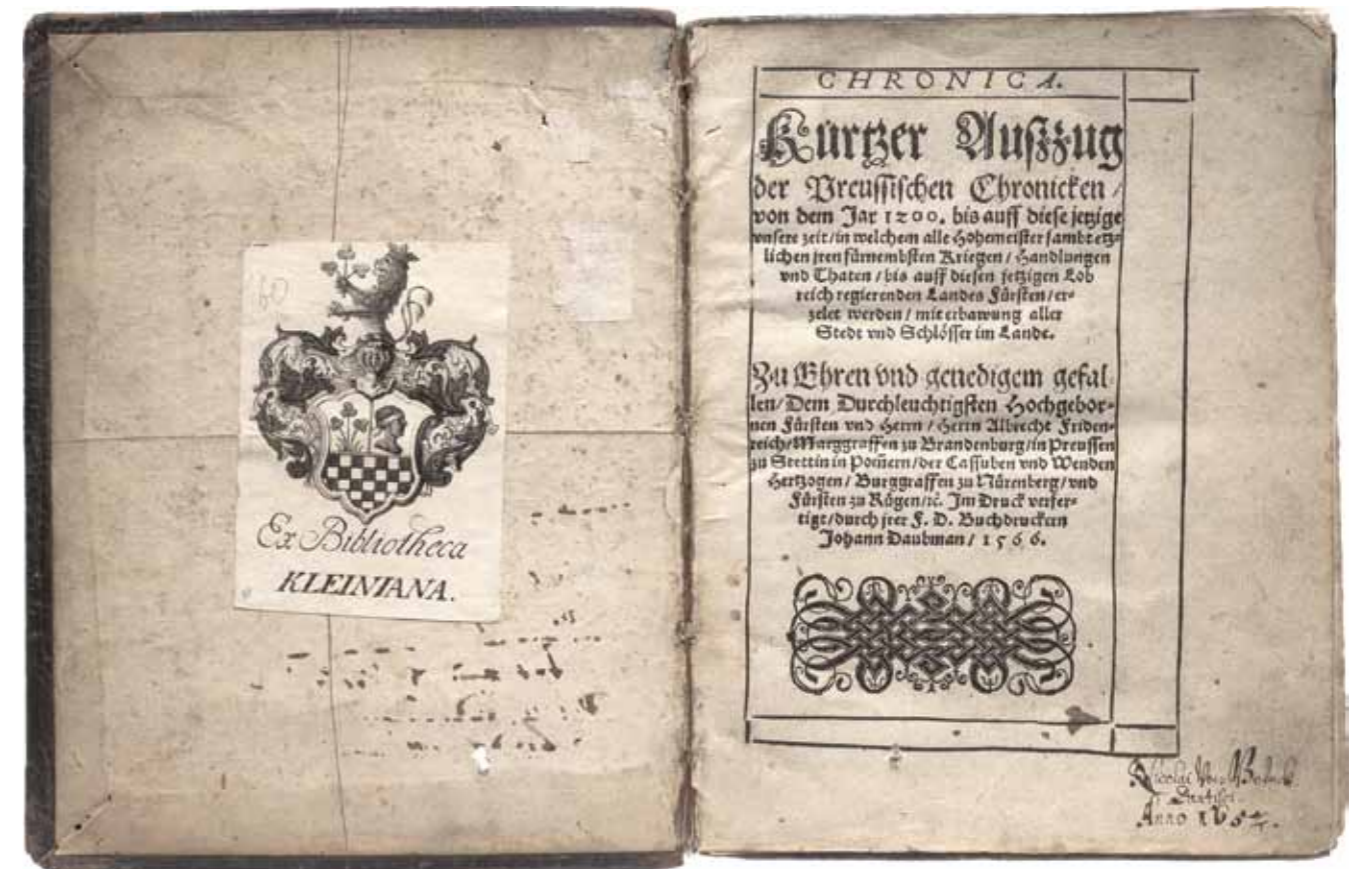 160
Ex Bibliotheca
KLEINIANA.
CHRONICA.
Kurtzer Außzug
der Preussischen Chronicken /
von dem Jar 1200. bis auff diese jetzige
vnsere zeit / in welchem alle Hohemeister sambt etz⸗
lichen jren fürnembsten Kriegen / Handlungen
vnd Thaten / bis auff diesen jetzigen Lob
reich regierenden Landes Fürsten / er⸗
zelet werden / mit erbawung aller
Stedt vnd Schlösser im Lande.
Zu Ehren vnd genedigem gefal
len / Dem Durchleuchtigsten Hochgebor⸗
nen Fürsten vnd Herrn / Herrn Albrecht Friden⸗
reich / Marggraffen zu Brandenburg / in Preussen
zu Stettin in Pom̃ern / der Cassuben vnd Wenden
Hertzogen / Burggraffen zu Nürenberg / vnd
Fürsten zu Rügen / ꝛc. Im Druck verfer⸗
tigt / durch jrer F. D. Buchdruckern
Johann Daubman / 1566.
Nicolai
Anno